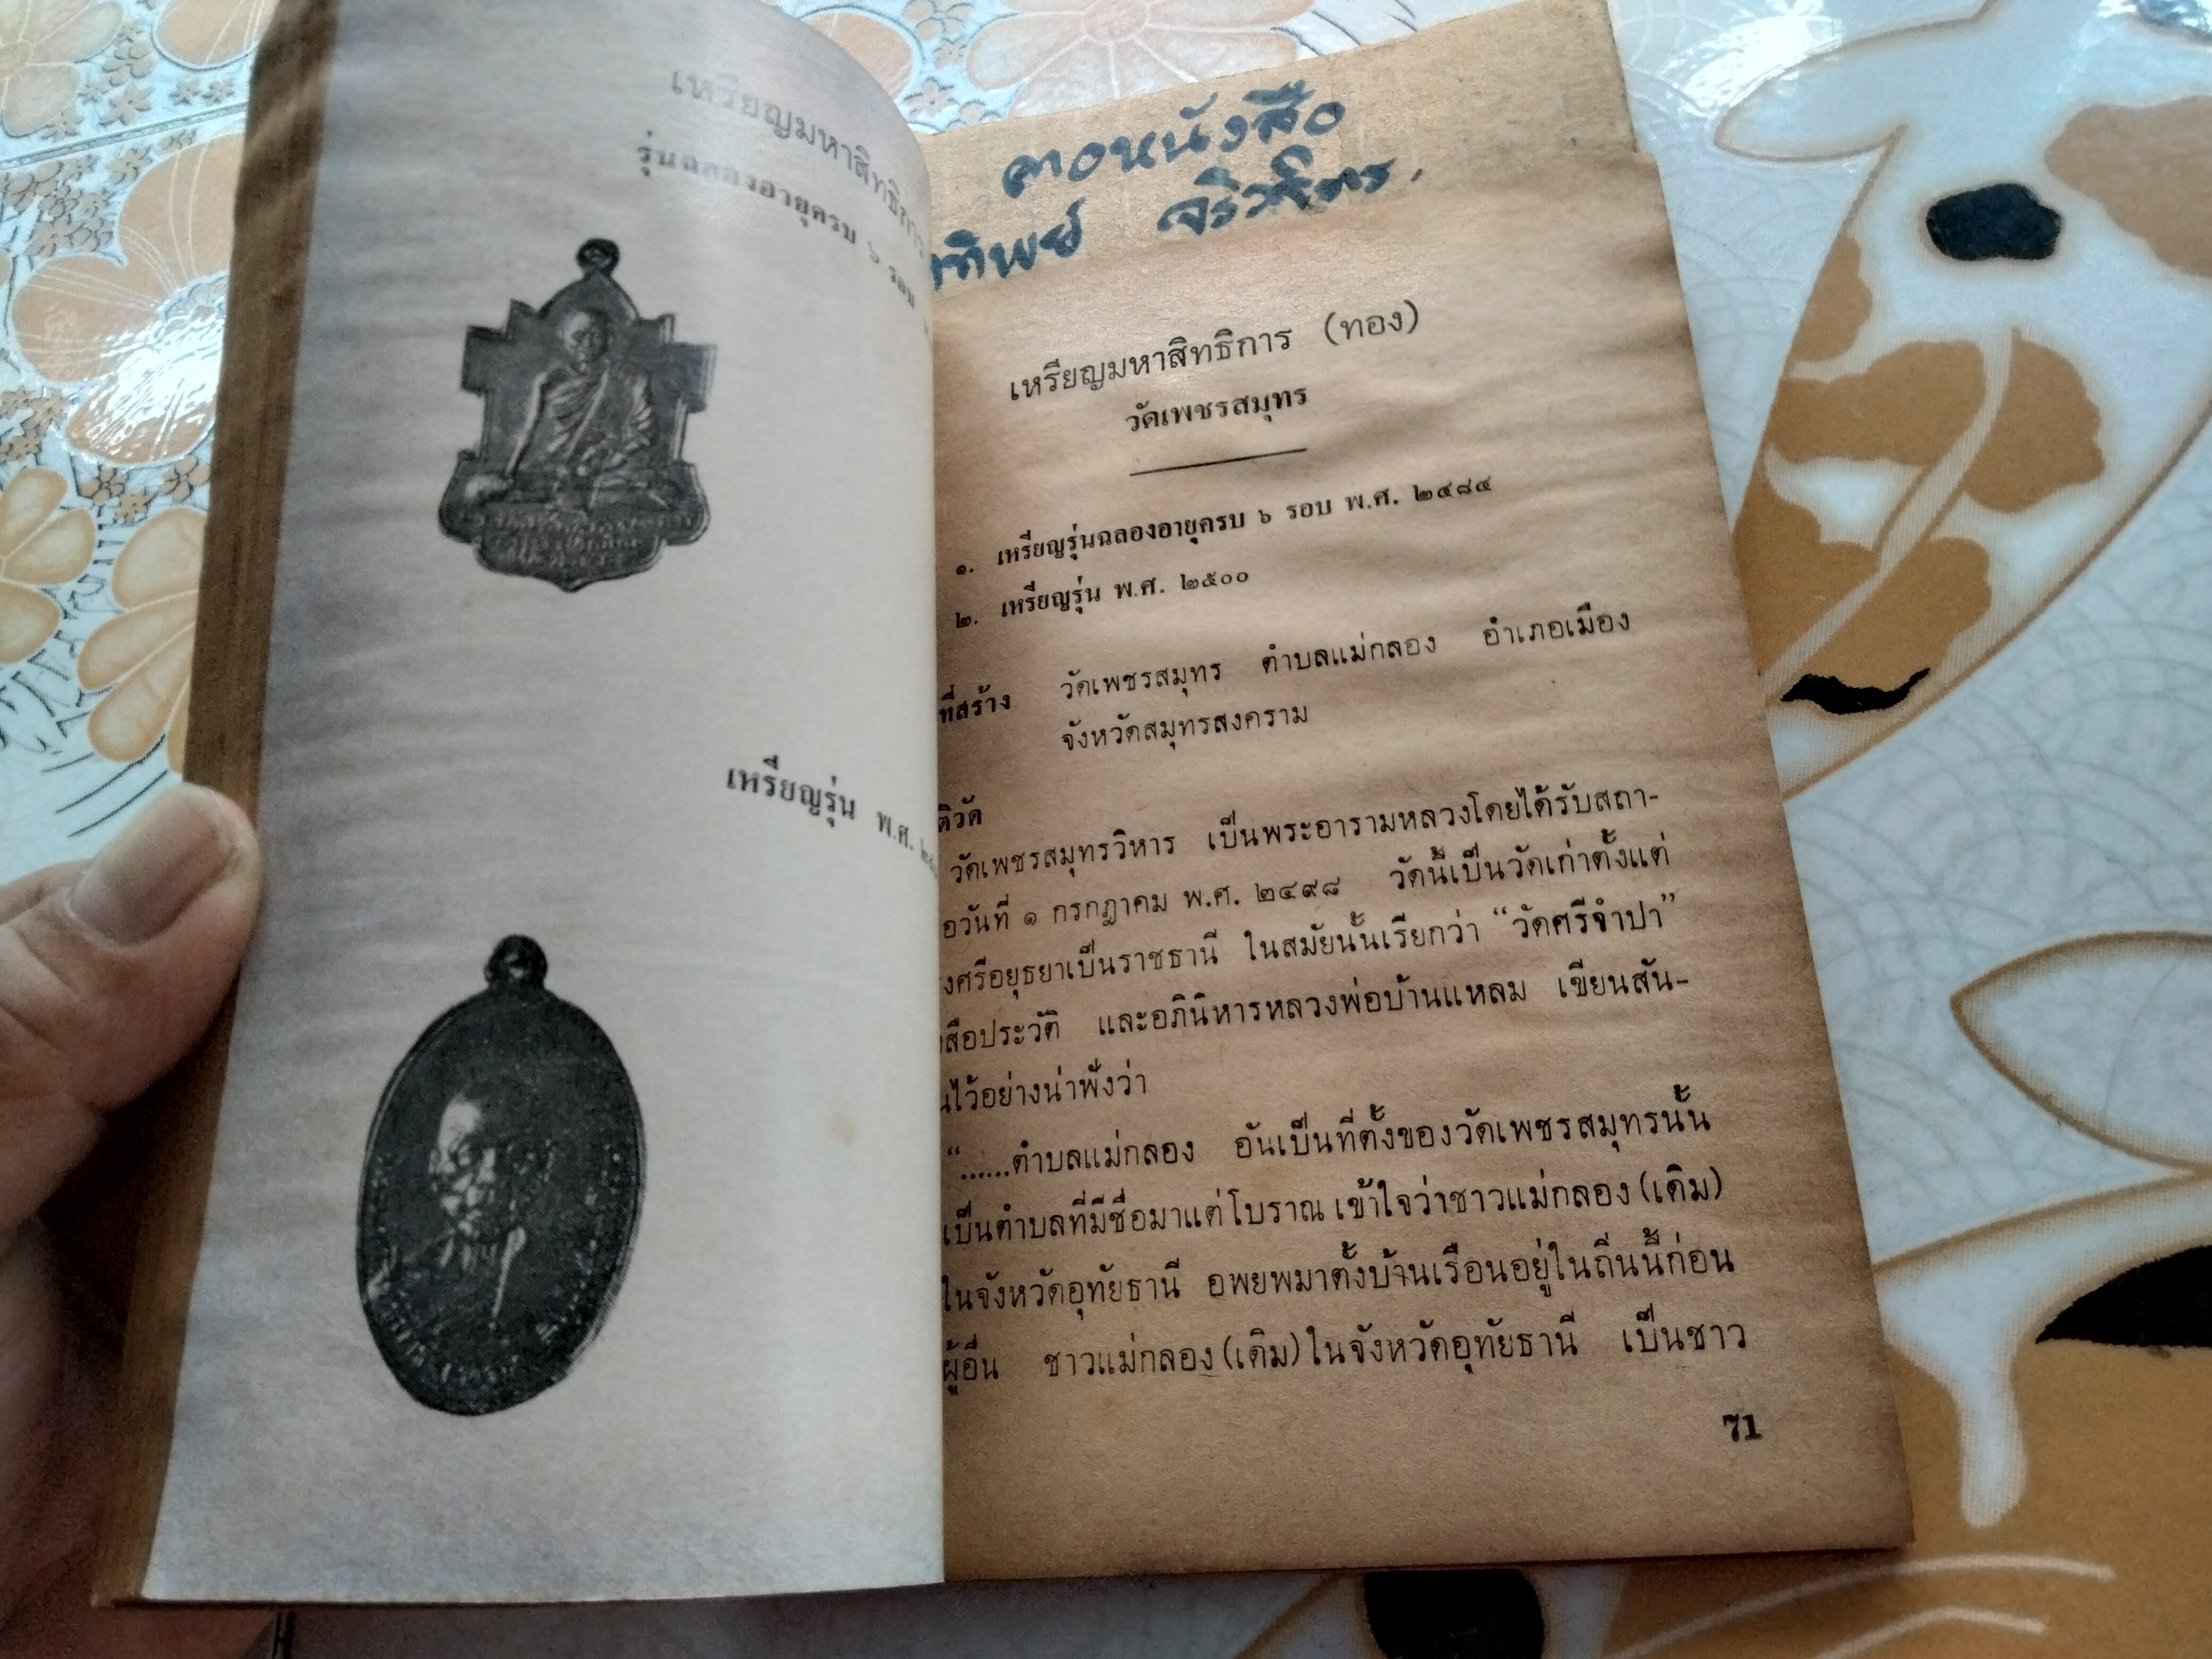 เหรียญมหาสิทธิการ
รุ่นฉลองอายุครบ ๖ รอบ
เหรียญรุ่น พ.ศ.
หนังสือ
ทิพย์
เหรียญมหาสิทธิการ (ทอง)
วัดเพชรสมุทร
๑. เหรียญรุ่นฉลองอายุครบ ๖ รอบ พ.ศ. ๒๔๘๔
๒. เหรียญรุ่น พ.ศ. ๒๕๐๐
ที่สร้าง วัดเพชรสมุทร ตำบลแม่กลอง อำเภอเมือง
จังหวัดสมุทรสงคราม
ติวัด
วัดเพชรสมุทรวิหาร เป็นพระอารามหลวงโดยได้รับสถา-
อวันที่ ๑ กรกฎาคม พ.ศ. ๒๔๙๘ วัดนี้เป็นวัดเก่าตั้งแต่
งศรีอยุธยาเป็นราชธานี ในสมัยนั้นเรียกว่า “วัดศรีจำปา”
สือประวัติ และอภินิหารหลวงพ่อบ้านแหลม เขียนสัน-
ไว้อย่างน่าฟังว่า
“......ตำบลแม่กลอง อันเป็นที่ตั้งของวัดเพชรสมุทรนั้น
เป็นตำบลที่มีชื่อมาแต่โบราณ เข้าใจว่าชาวแม่กลอง (เดิม)
ในจังหวัดอุทัยธานี อพยพมาตั้งบ้านเรือนอยู่ในถิ่นนี้ก่อน
ผู้อื่น ชาวแม่กลอง (เดิม) ในจังหวัดอุทัยธานี เป็นชาว
71